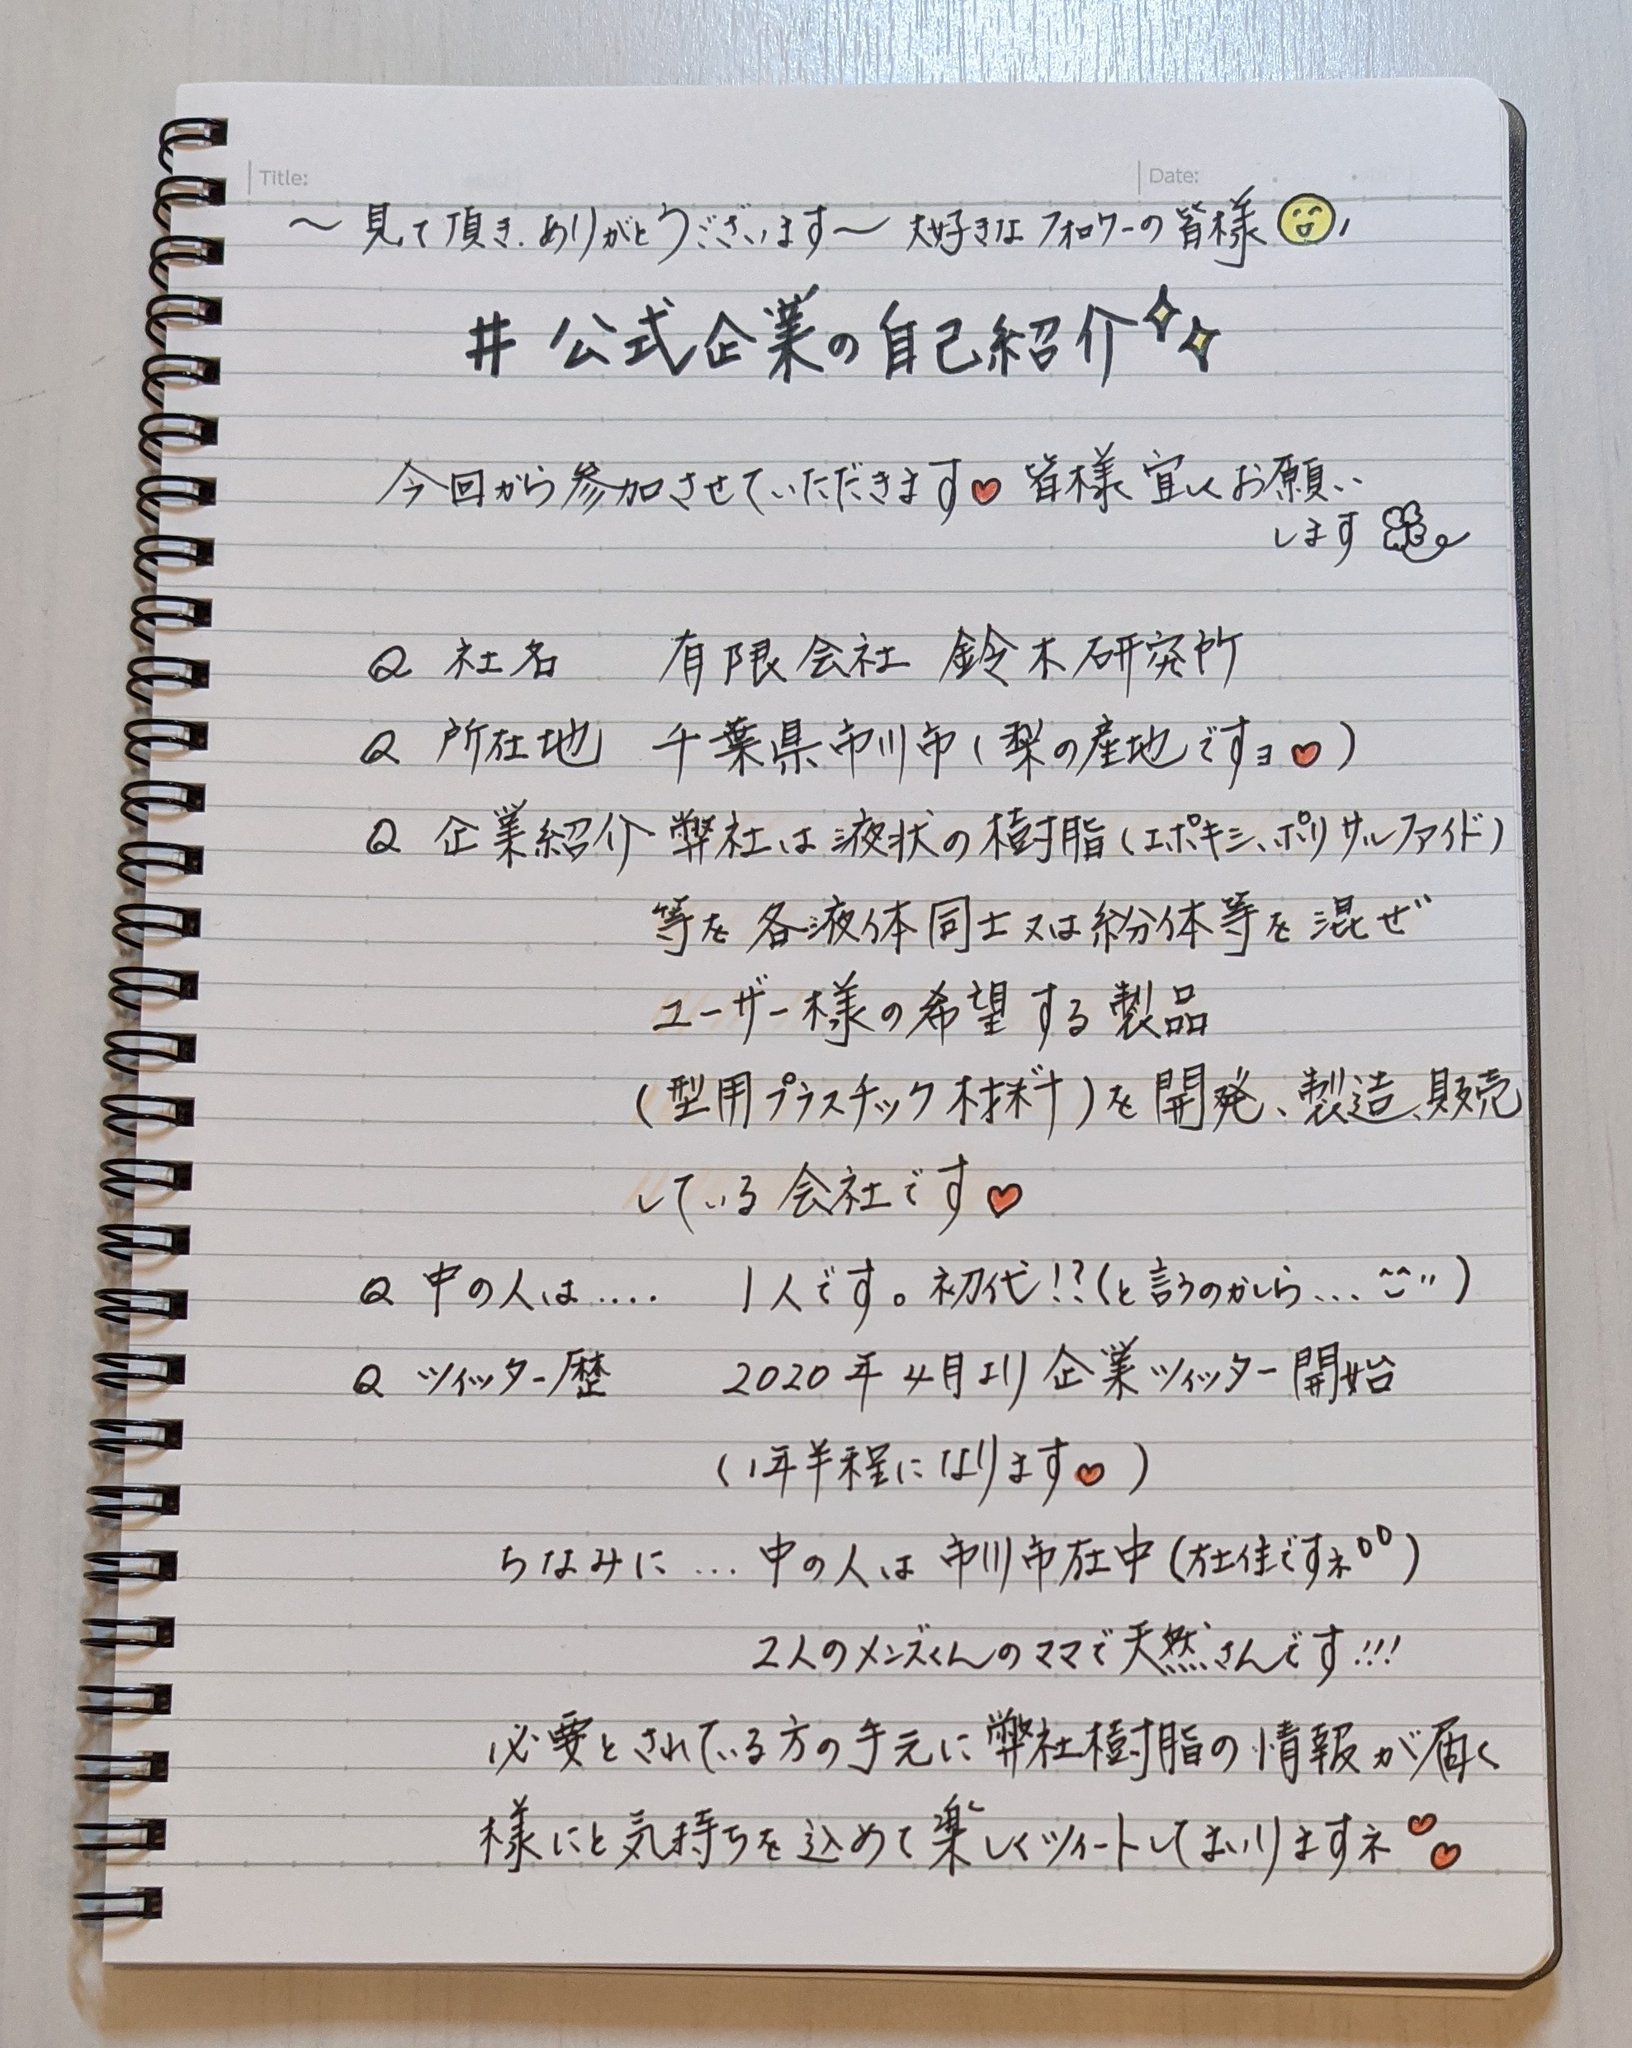 Title:
Date:
～見て頂き、ありがとうございます～大好きなフォロワーの皆様
#公式企業の自己紹介
今回から参加させていただきます 皆様宜しくお願い
します
Q 社名 有限会社 鈴木研究所
Q 所在地 千葉県市川市(梨の産地ですョ)
Q 企業紹介 弊社は液状の樹脂(エポキシ、ポリサルファイド)
等を各液体同士又は紛体等を混ぜ
ユーザー様の希望する製品
(型用プラスチック材料)を開発、製造、販売
している会社です
Q 中の人は.... 1人です。初代!?(と言うのかしら...)
Q ツイッター歴 2020年4月より企業ツイッター開始
(1年半程になります)
ちなみに... 中の人は市川市在中(在住ですネ)
2人のメンズくんのママで天然さんです!!!
必要とされている方の手元に弊社樹脂の情報が届く
様にと気持ちを込めて楽しくツイートしてまいりますネ